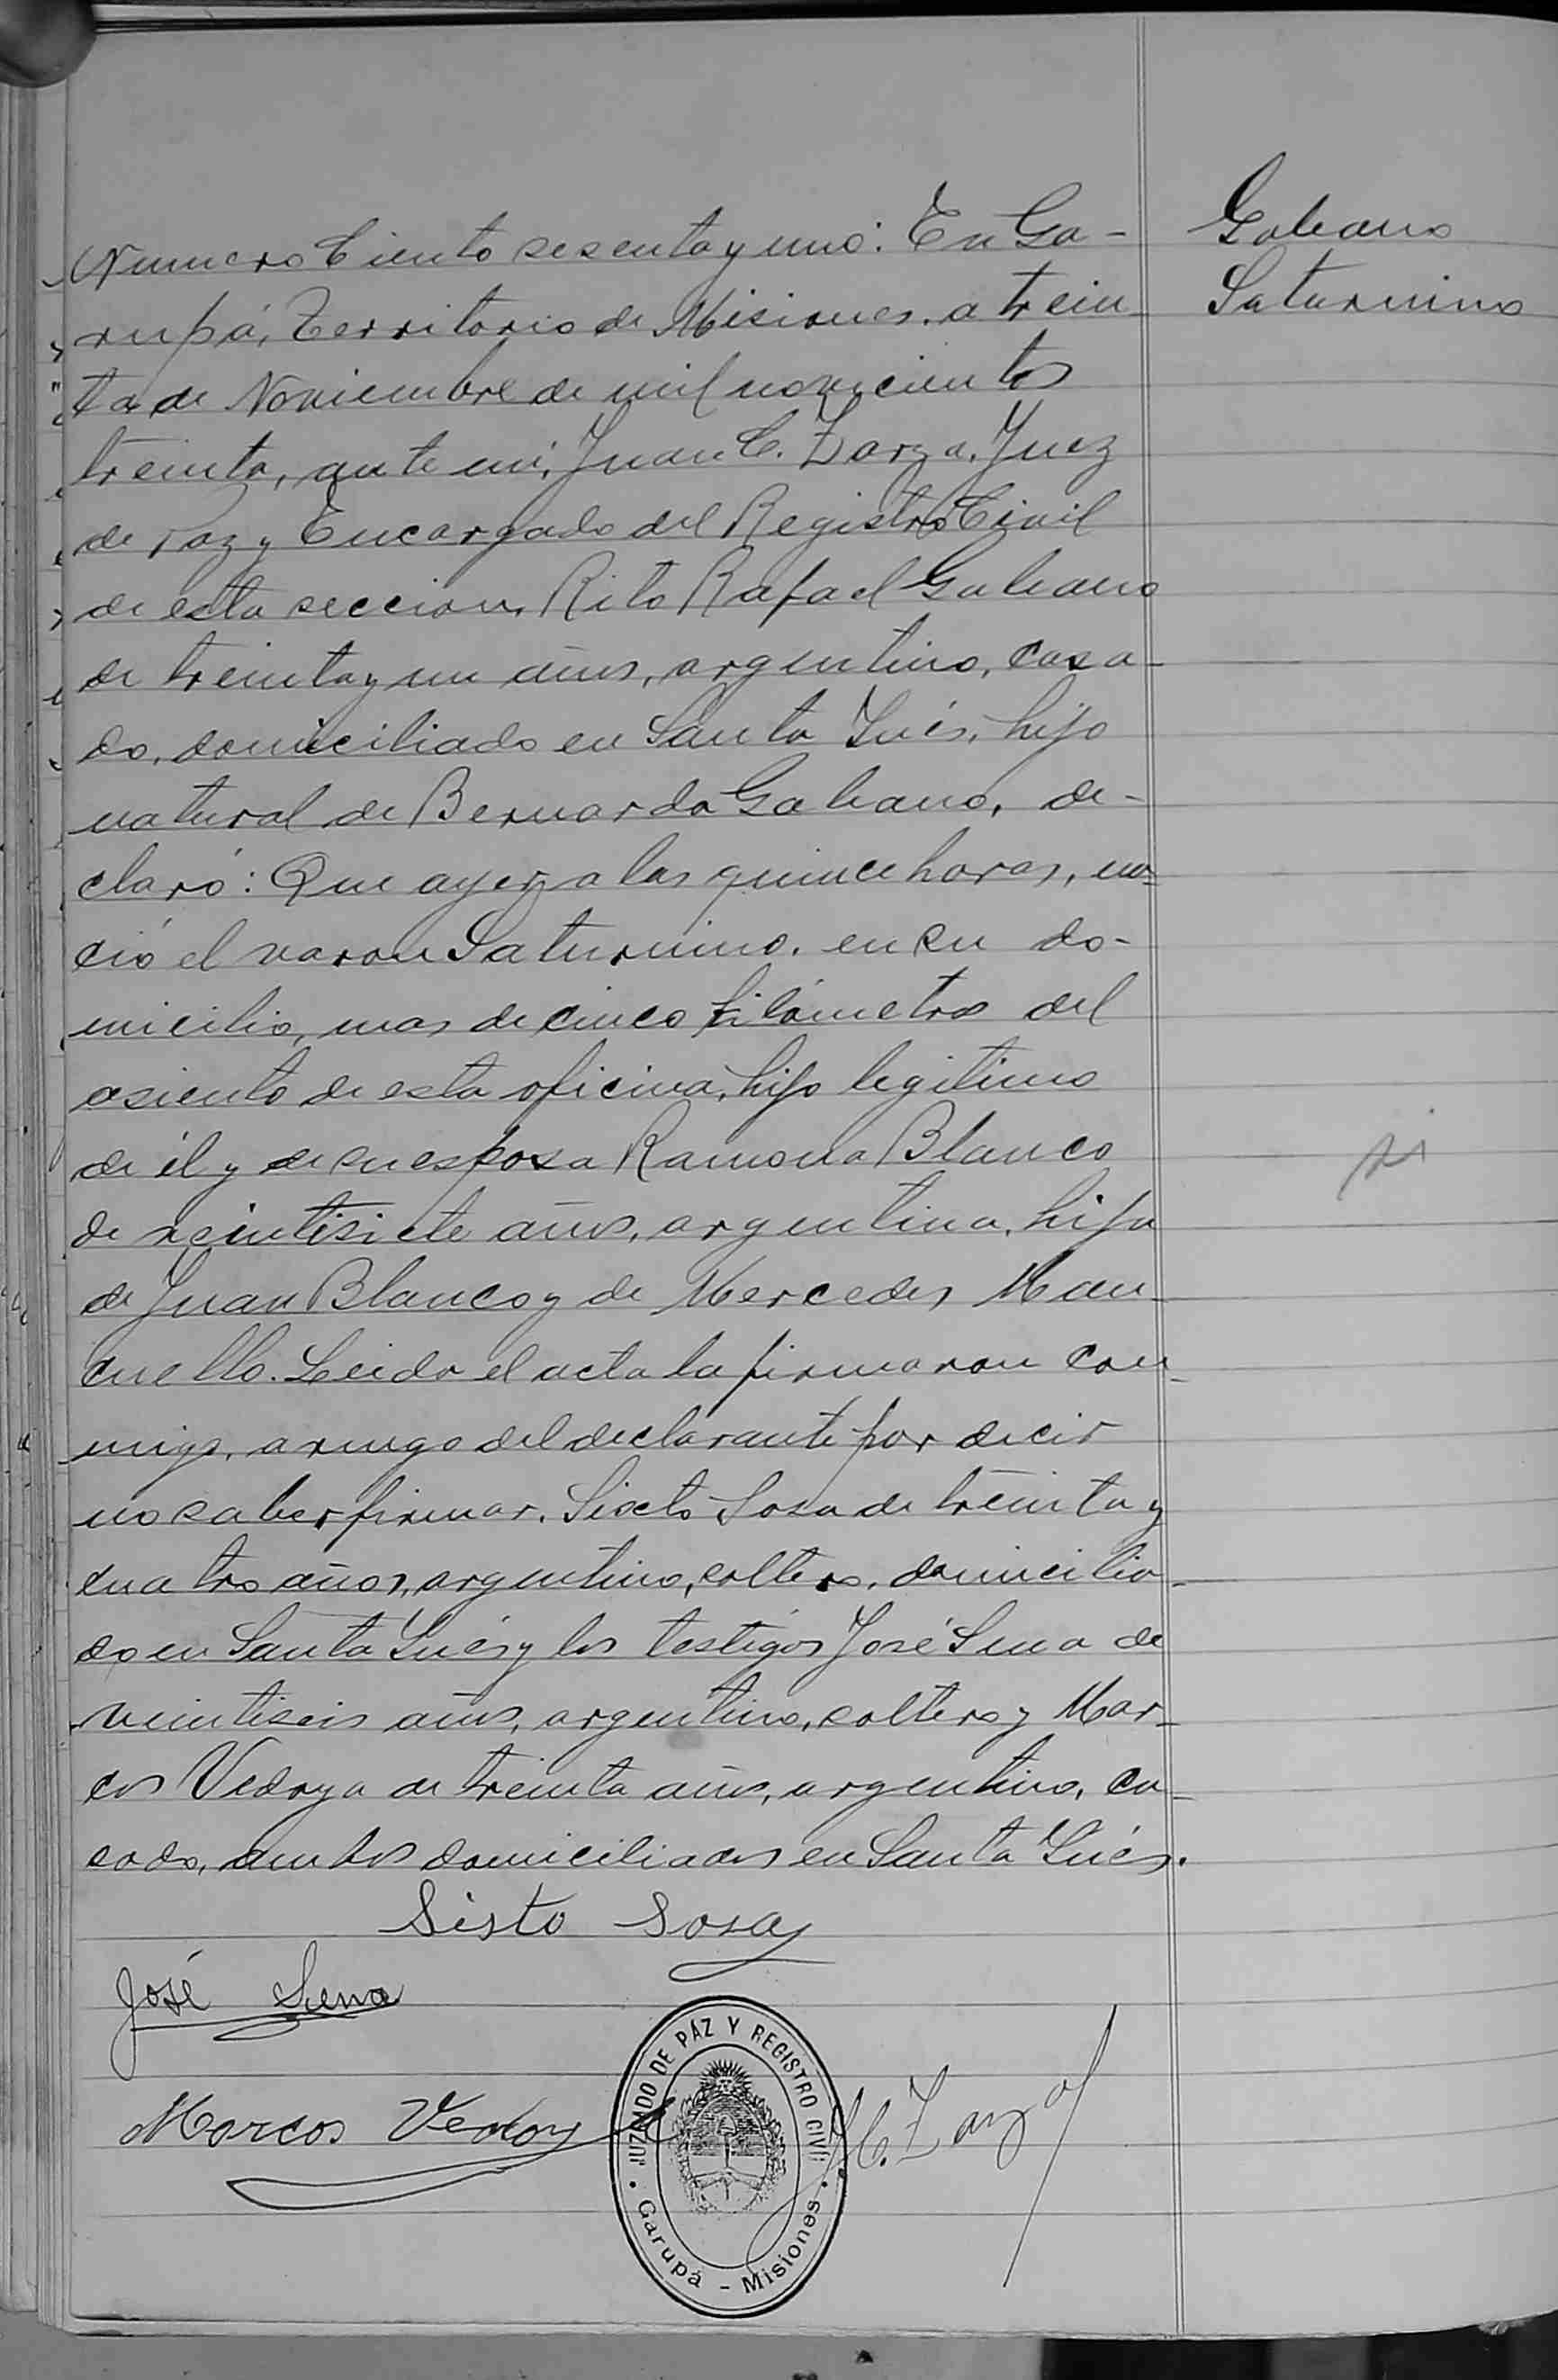 Galeano
Saturnino
Numero Ciento sesenta y uno: En Ga-
rupá, Territorio de Misiones, a trein
ta de Noviembre de mil novecientos
treinta, ante mi, Juan C. Zarza, Juez
de Paz y Encargado del Registro Civil
de esta seccion, Rito Rafael Galeano
de treinta y un años, argentino, casa-
do, domiciliado en Santa Inés, hijo
natural de Bernarda Galeano, de-
claró: Que ayer, a las quince horas, na-
ció el varon Saturnino, en su do-
micilio, mas de cinco kilómetros del
asiento de esta oficina, hijo legitimo
de él y de su esposa Ramona Blanco
de veintisiete años, argentina, hija
de Juan Blanco y de Mercedes Man-
cuello. Leida el acta la firmaron con-
migo, a ruego del declarante por decir
no saber firmar, Sixto Sosa de treinta y
cuatro años, argentino, soltero, domicilia-
do en Santa Inés y los testigos José Sena de
veintiseis años, argentino, soltero y Mar-
cos Vedoya de treinta años, argentino, ca-
sado, ambos domiciliados en Santa Inés.
Sisto Sosa
José Sena
Marcos Vedoya
J. C. Zarza
JUZGADO DE PAZ Y REGISTRO CIVIL
Garupá - Misiones